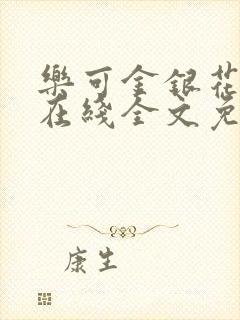 樂可金銀花
在綫全文免
康生